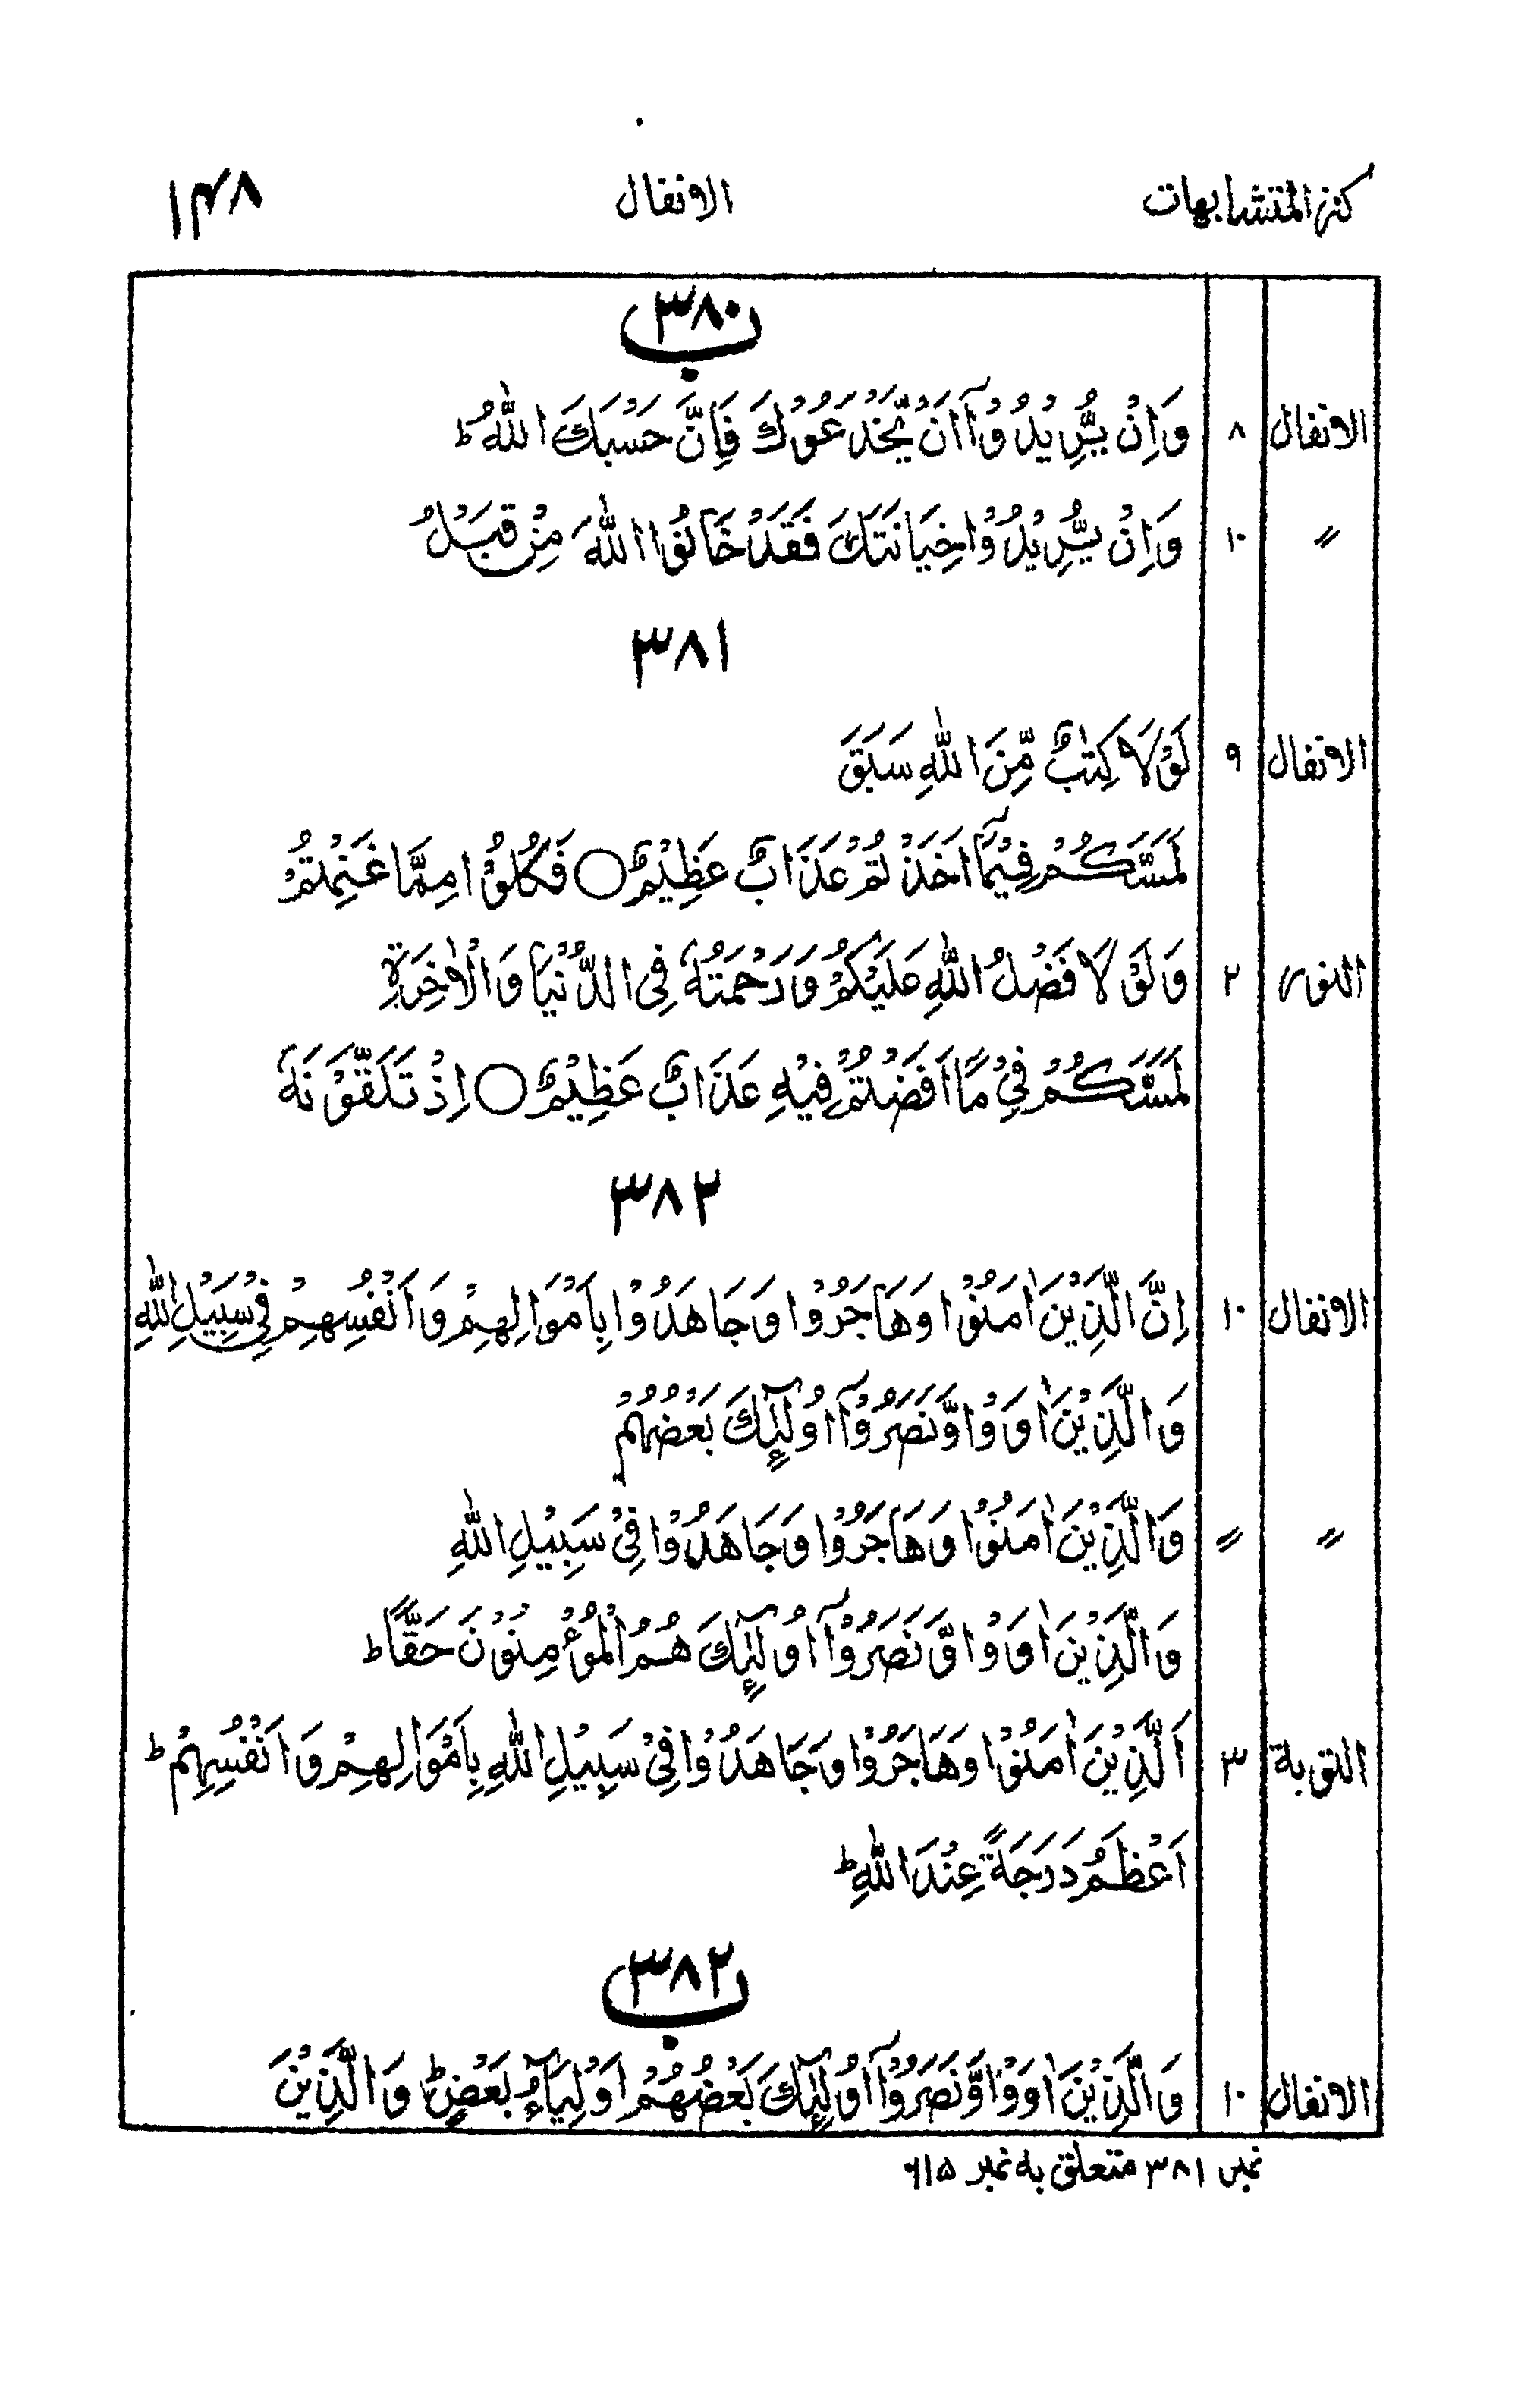 كنز المتشابهات الانفال ۱۴۸
۳۸۰ ب
الانفال ۸ وَاِنْ يُّرِيْدُوْۤا اَنْ يَّخْدَعُوْكَ فَاِنَّ حَسْبَكَ اللّٰهُ ؕ
〃 ۱۰ وَاِنْ يُّرِيْدُوْا خِيَانَتَكَ فَقَدْ خَانُوا اللّٰهَ مِنْ قَبْلُ
۳۸۱
الانفال ۹ لَوْلَا كِتٰبٌ مِّنَ اللّٰهِ سَبَقَ
لَمَسَّكُمْ فِيْمَاۤ اَخَذْتُمْ عَذَابٌ عَظِيْمٌ ○ فَكُلُوْا مِمَّا غَنِمْتُمْ
النور ۲ وَلَوْلَا فَضْلُ اللّٰهِ عَلَيْكُمْ وَرَحْمَتُهٗ فِى الدُّنْيَا وَالْاٰخِرَةِ
لَمَسَّكُمْ فِيْ مَاۤ اَفَضْتُمْ فِيْهِ عَذَابٌ عَظِيْمٌ ○ اِذْ تَلَقَّوْنَهٗ
۳۸۲
الانفال ۱۰ اِنَّ الَّذِيْنَ اٰمَنُوْا وَهَاجَرُوْا وَجَاهَدُوْا بِاَمْوَالِهِمْ وَاَنْفُسِهِمْ فِيْ سَبِيْلِ اللّٰهِ
وَالَّذِيْنَ اٰوَوْا وَّنَصَرُوْۤا اُولٰٓئِكَ بَعْضُهُمْ
〃 〃 وَالَّذِيْنَ اٰمَنُوْا وَهَاجَرُوْا وَجَاهَدُوْا فِيْ سَبِيْلِ اللّٰهِ
وَالَّذِيْنَ اٰوَوْا وَّنَصَرُوْۤا اُولٰٓئِكَ هُمُ الْمُؤْمِنُوْنَ حَقًّا ؕ
التوبة ۳ اَلَّذِيْنَ اٰمَنُوْا وَهَاجَرُوْا وَجَاهَدُوْا فِيْ سَبِيْلِ اللّٰهِ بِاَمْوَالِهِمْ وَاَنْفُسِهِمْ ؕ
اَعْظَمُ دَرَجَةً عِنْدَ اللّٰهِ ؕ
۳۸۲ ب
الانفال ۱۰ وَالَّذِيْنَ اٰوَوْا وَّنَصَرُوْۤا اُولٰٓئِكَ بَعْضُهُمْ اَوْلِيَآءُ بَعْضٍ ؕ وَالَّذِيْنَ
نمبر ۳۸۱ متعلق به نمبر ۶۱۵